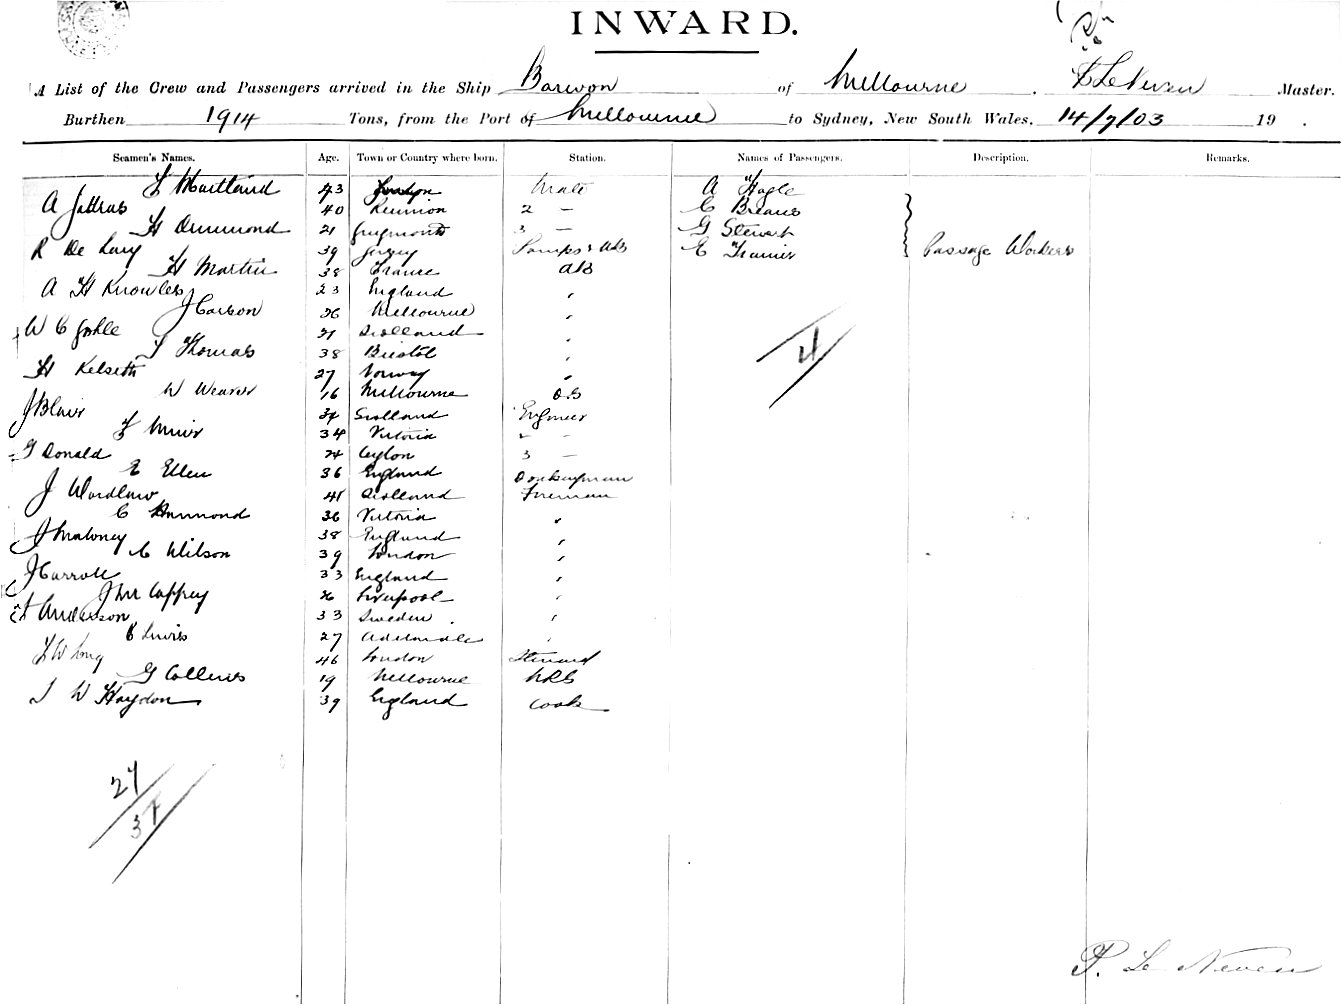 INWARD.
A List of the Crew and Passengers arrived in the Ship Barwon of Melbourne . P Le Neven Master.
Burthen 1914 Tons, from the Port of Melbourne to Sydney, New South Wales, 14/7/03 19 .
Seamen's Names. Age. Town or Country where born. Station. Names of Passengers. Description. Remarks.
F Maitland 43 London Mate A Hogle
A Jattras 40 Reunion 2 — C Breaus
H Drummond 21 3 — G Stewart
R De Lacy 39 Jersey Lamps & AB E Trainer Passage Workers
H Martin 38 France AB
A H Knowles 23 England "
J Carson 26 Melbourne "
W C Gohle 21 Scotland "
T Thomas 38 Bristol "
H Kelseth 27 Norway "
W Weaver 16 Melbourne O.S
J Blair 34 Scotland Engineer
F Muir 34 Victoria 2 —
G Donald 24 Ceylon 3 —
E Ellen 36 England Donkeyman
J Wardlaw 41 Scotland Fireman
C Hammond 36 Victoria "
J Maloney 38 England "
C Wilson 39 London "
J Carroll 33 England "
J McCaffrey 26 Liverpool "
Anderson 33 Sweden "
C Lewis 27 Adelaide "
F W Long 46 London Steward
G Collins 19 Melbourne
J W Haydon 39 England Cook
4
27
37
P. Le Neven